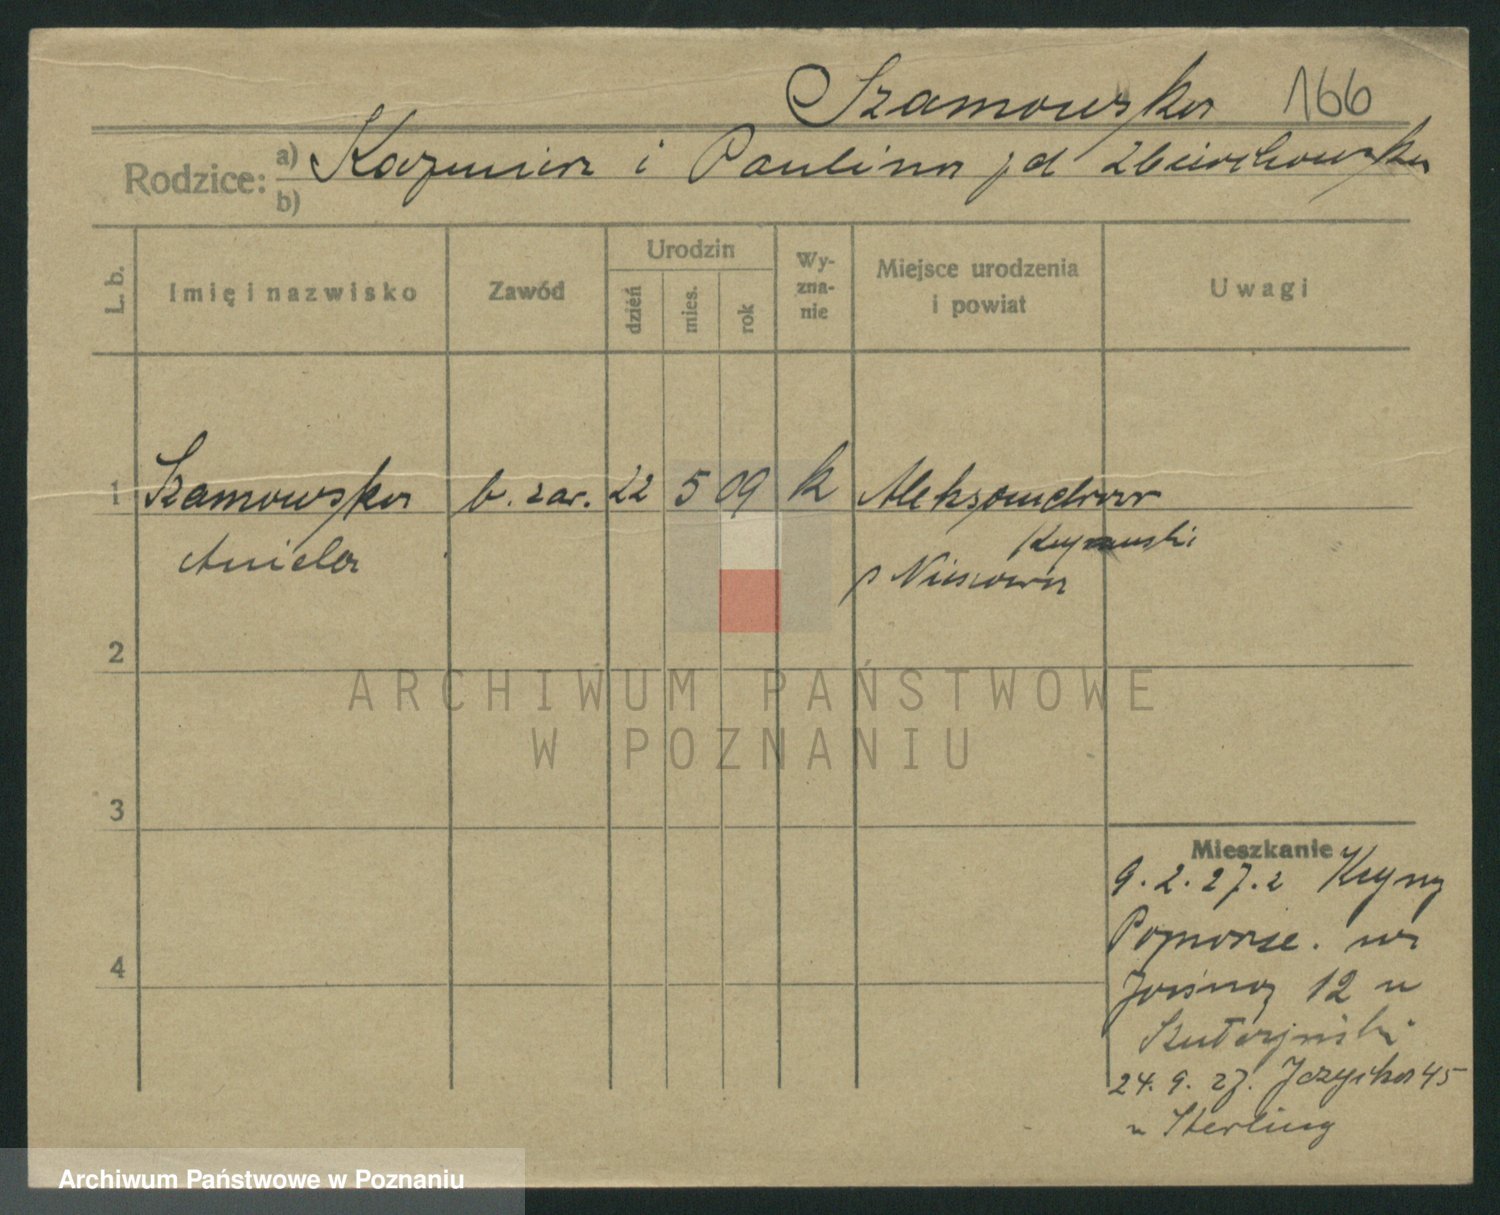 Szamowska 166
Rodzice: a) Kazimierz i Paulina zd Zbierchowska
b)
L. b.
Imię i nazwisko
Zawód
Urodzin
dzień
mies.
rok
Wy-
zna-
nie
Miejsce urodzenia
i powiat
Uwagi
1 Szamowska b. zaw. 22 5 09 k Aleksandrow
Aniela
Kujawski
p Nieszawa
2
ARCHIWUM PAŃSTWOWE
W POZNANIU
3
4
Mieszkanie
9. 2. 27. z
Pomorze. na
Jasna 12 u
24. 9. 27. 45
u Sterling
Archiwum Państwowe w Poznaniu